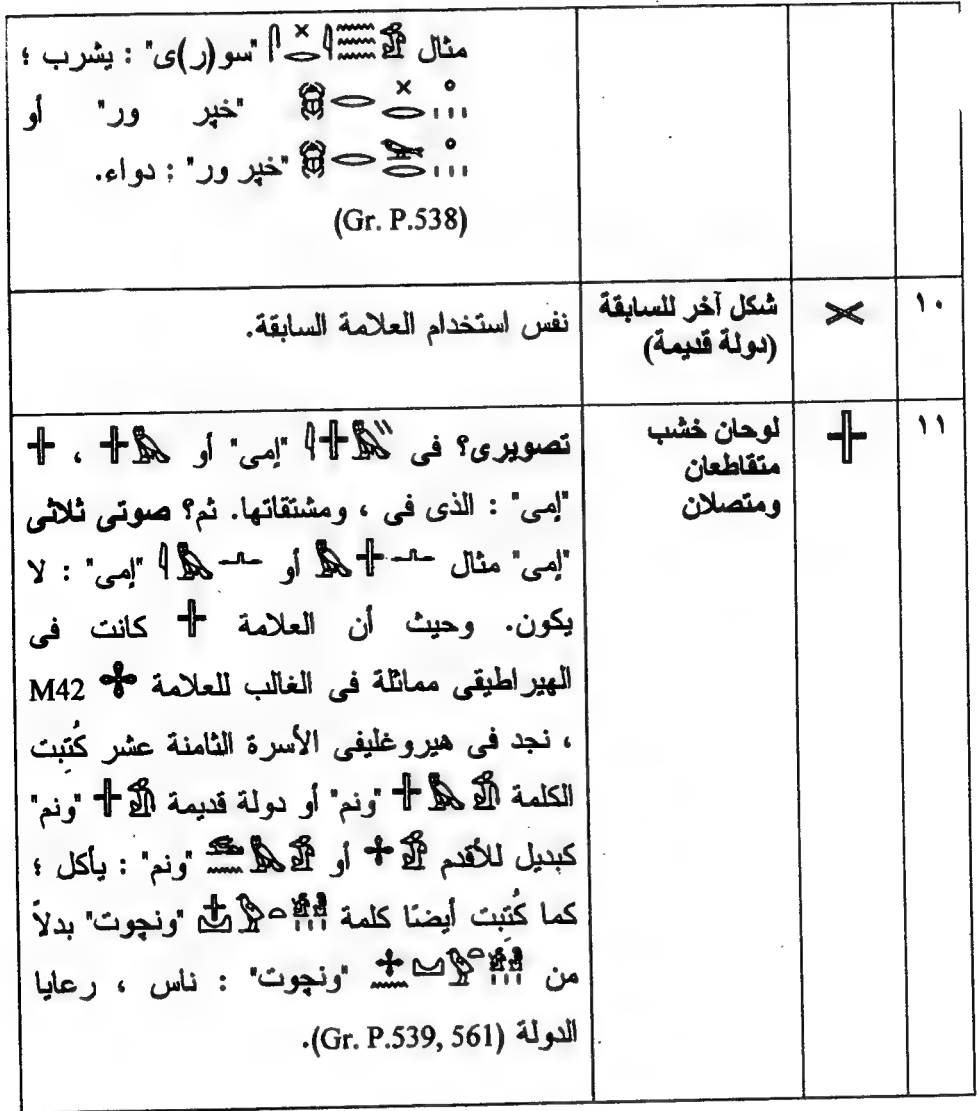 مثال "سو(ر)ى" : يشرب ؛
"خپر ور" أو
"خپر ور" : دواء.
(Gr. P.538)
١٠
شكل آخر للسابقة
(دولة قديمة)
نفس استخدام العلامة السابقة.
١١
لوحان خشب
متقاطعان
ومتصلان
تصويرى؟ فى "إمى" أو ،
"إمى" : الذى فى ، ومشتقاتها. ثم؟ صوتى ثلاثى
"إمى" مثال أو "إمى" : لا
يكون. وحيث أن العلامة كانت فى
الهيراطيقى مماثلة فى الغالب للعلامة M42
، نجد فى هيروغليفى الأسرة الثامنة عشر كُتِبت
الكلمة "ونم" أو دولة قديمة "ونم"
كبديل للأقدم أو "ونم" : يأكل ؛
كما كُتِبت أيضًا كلمة "ونچوت" بدلاً
من "ونچوت" : ناس ، رعايا
الدولة (Gr. P.539, 561).